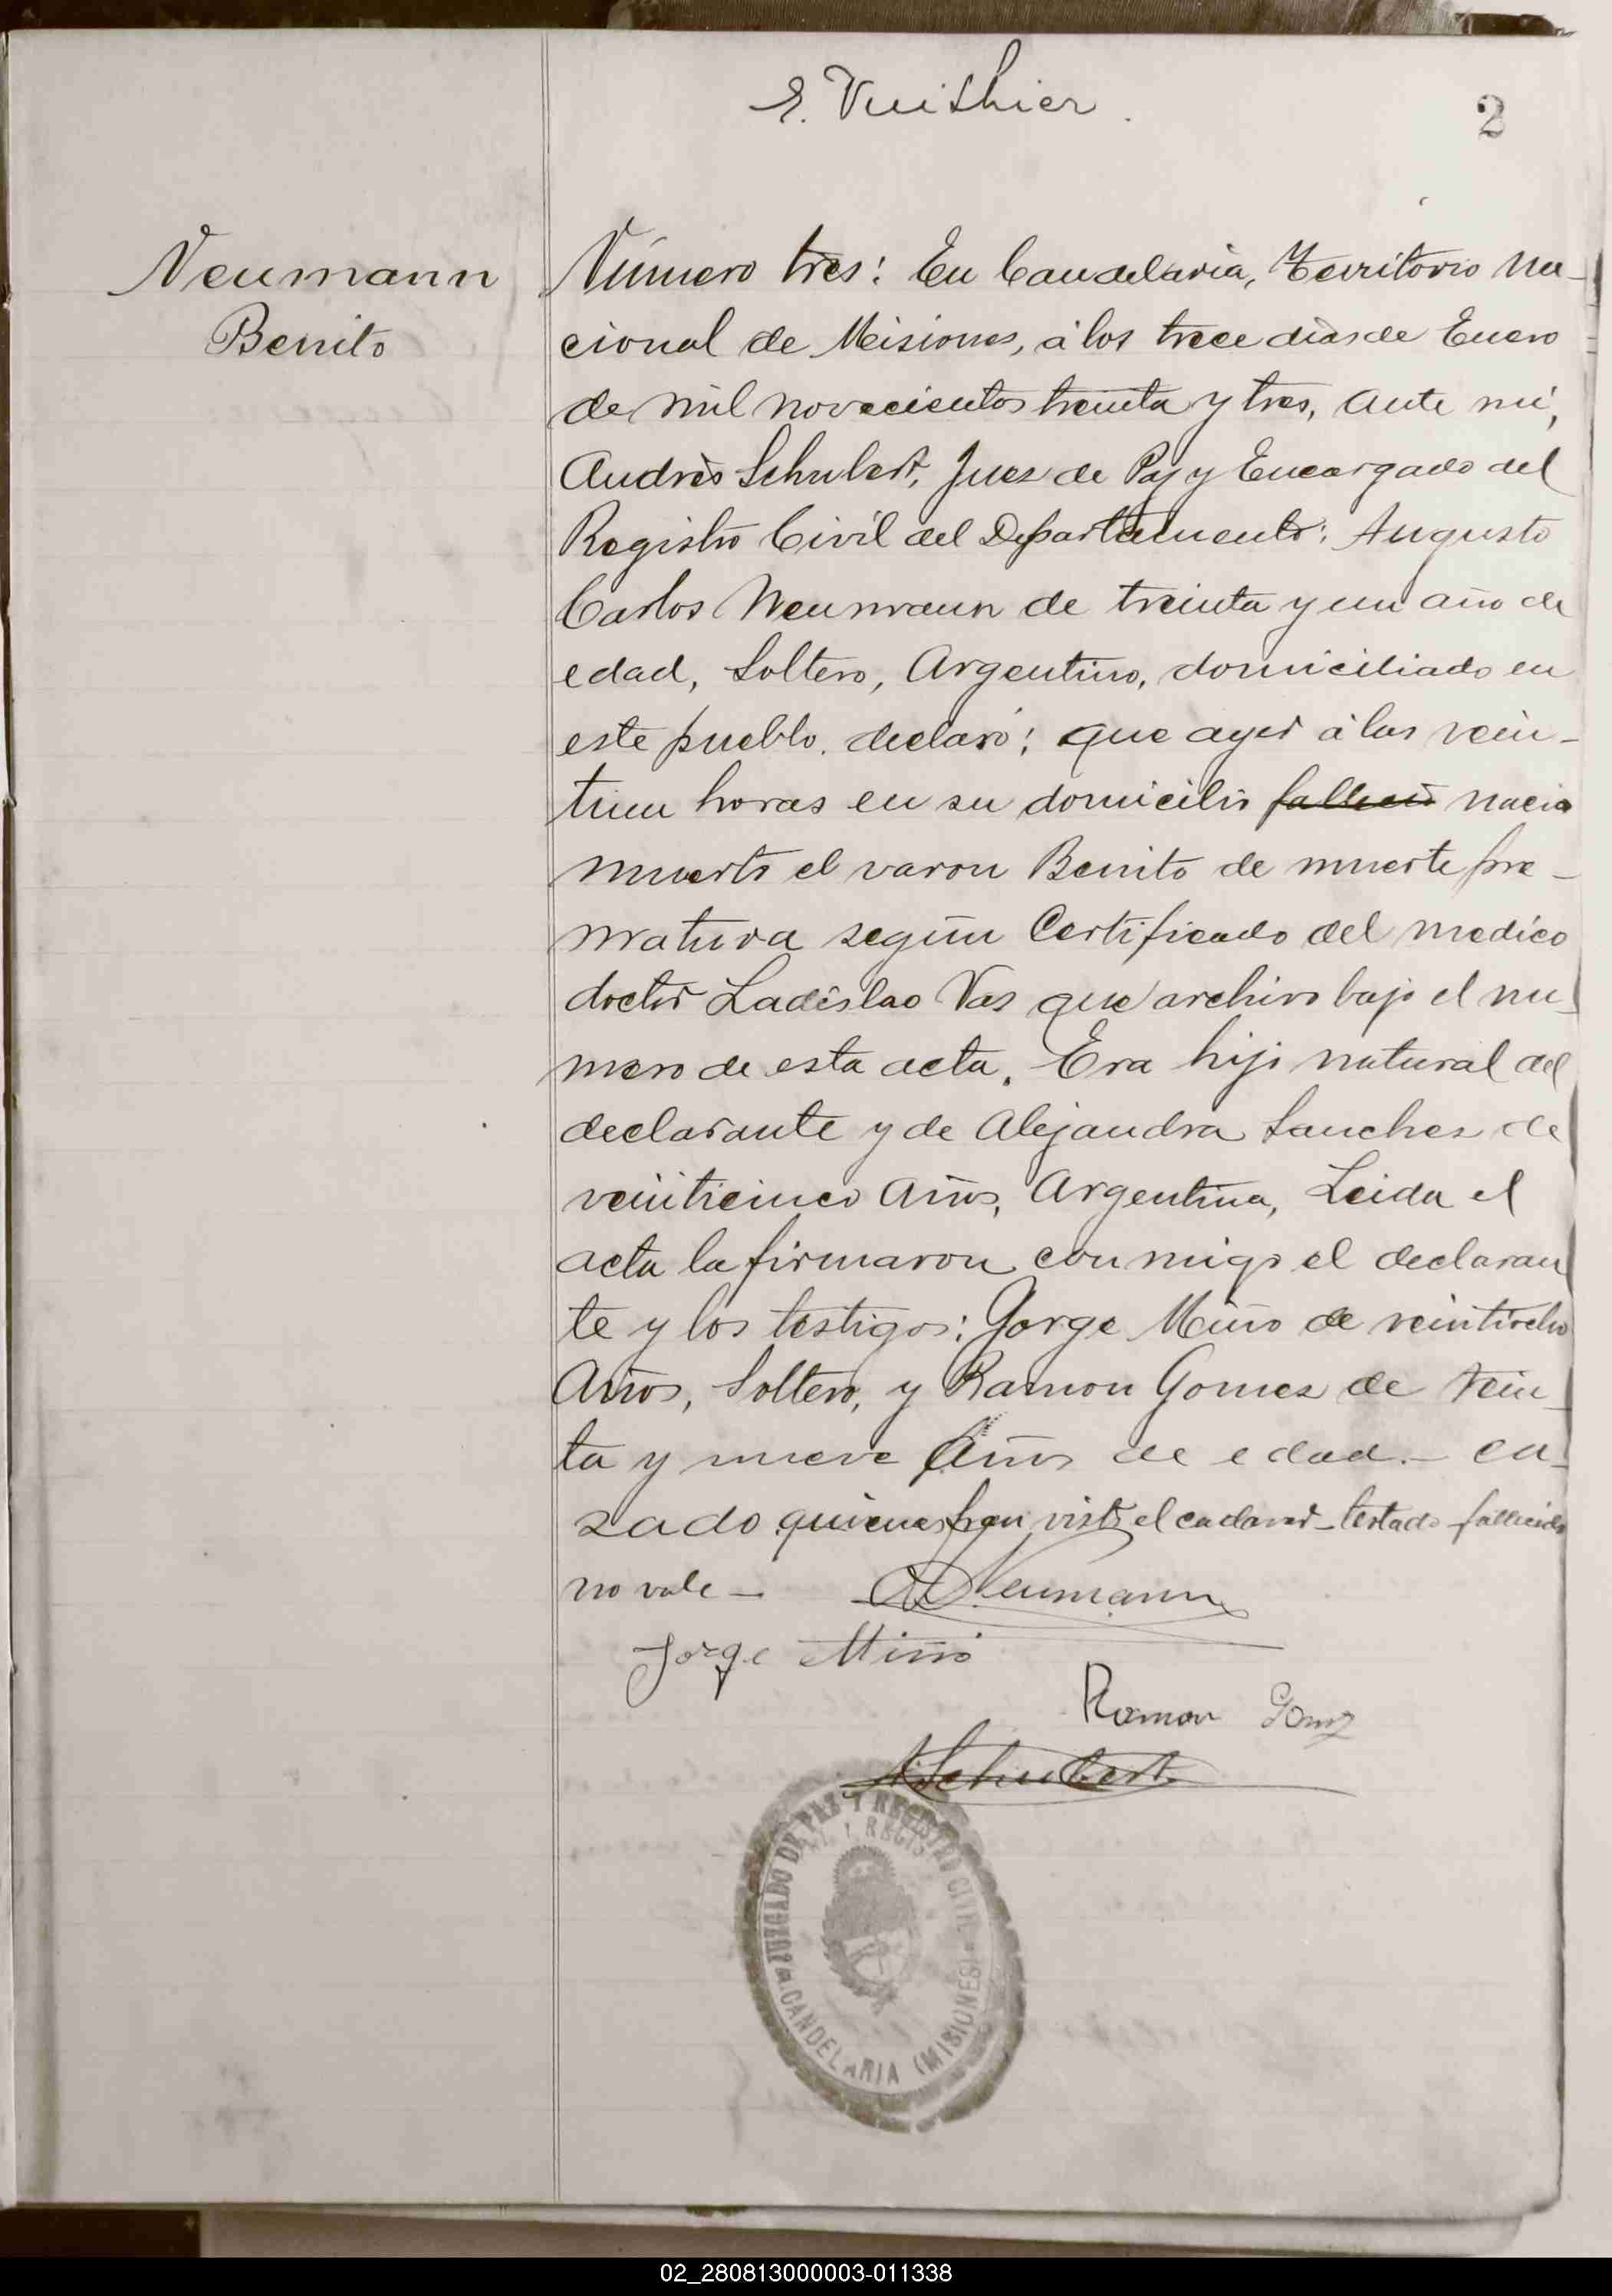 E. Vuithier.
2
Neumann
Benito
Número tres: En Candelaria, Territorio Na-
cional de Misiones, á los trece dias de Enero
de mil novecientos treinta y tres, ante mi,
Andrés Schubert, Juez de Paz y Encargado del
Registro Civil del Departamento: Augusto
Carlos Neumann de treinta y un año de
edad, Soltero, Argentino, domiciliado en
este pueblo. declaró: que ayer á las vein-
tiun horas en su domicilio falleció nacio
muerto el varon Benito de muerte pre-
matura según Certificado del medico
doctor Ladislao Vas que archivo bajo el nu-
mero de esta acta. Era hijo natural del
declarante y de Alejandra Sanches de
veinticinco Años, Argentina, Leida el
acta la firmaron conmigo el declaran
te y los testigos: Jorge Miño de veintiocho
Años, Soltero, y Ramon Gomez de trein-
ta y nueve Años de edad.- ca-
sado quienes han visto el cadaver - testado - fallecido
no vale - Neumann
Jorge Miño
Ramon Gomz
A. Schubert
JUZGADO DE PAZ Y REGISTRO CIVIL
CANDELARIA (MISIONES)
02_280813000003-011338